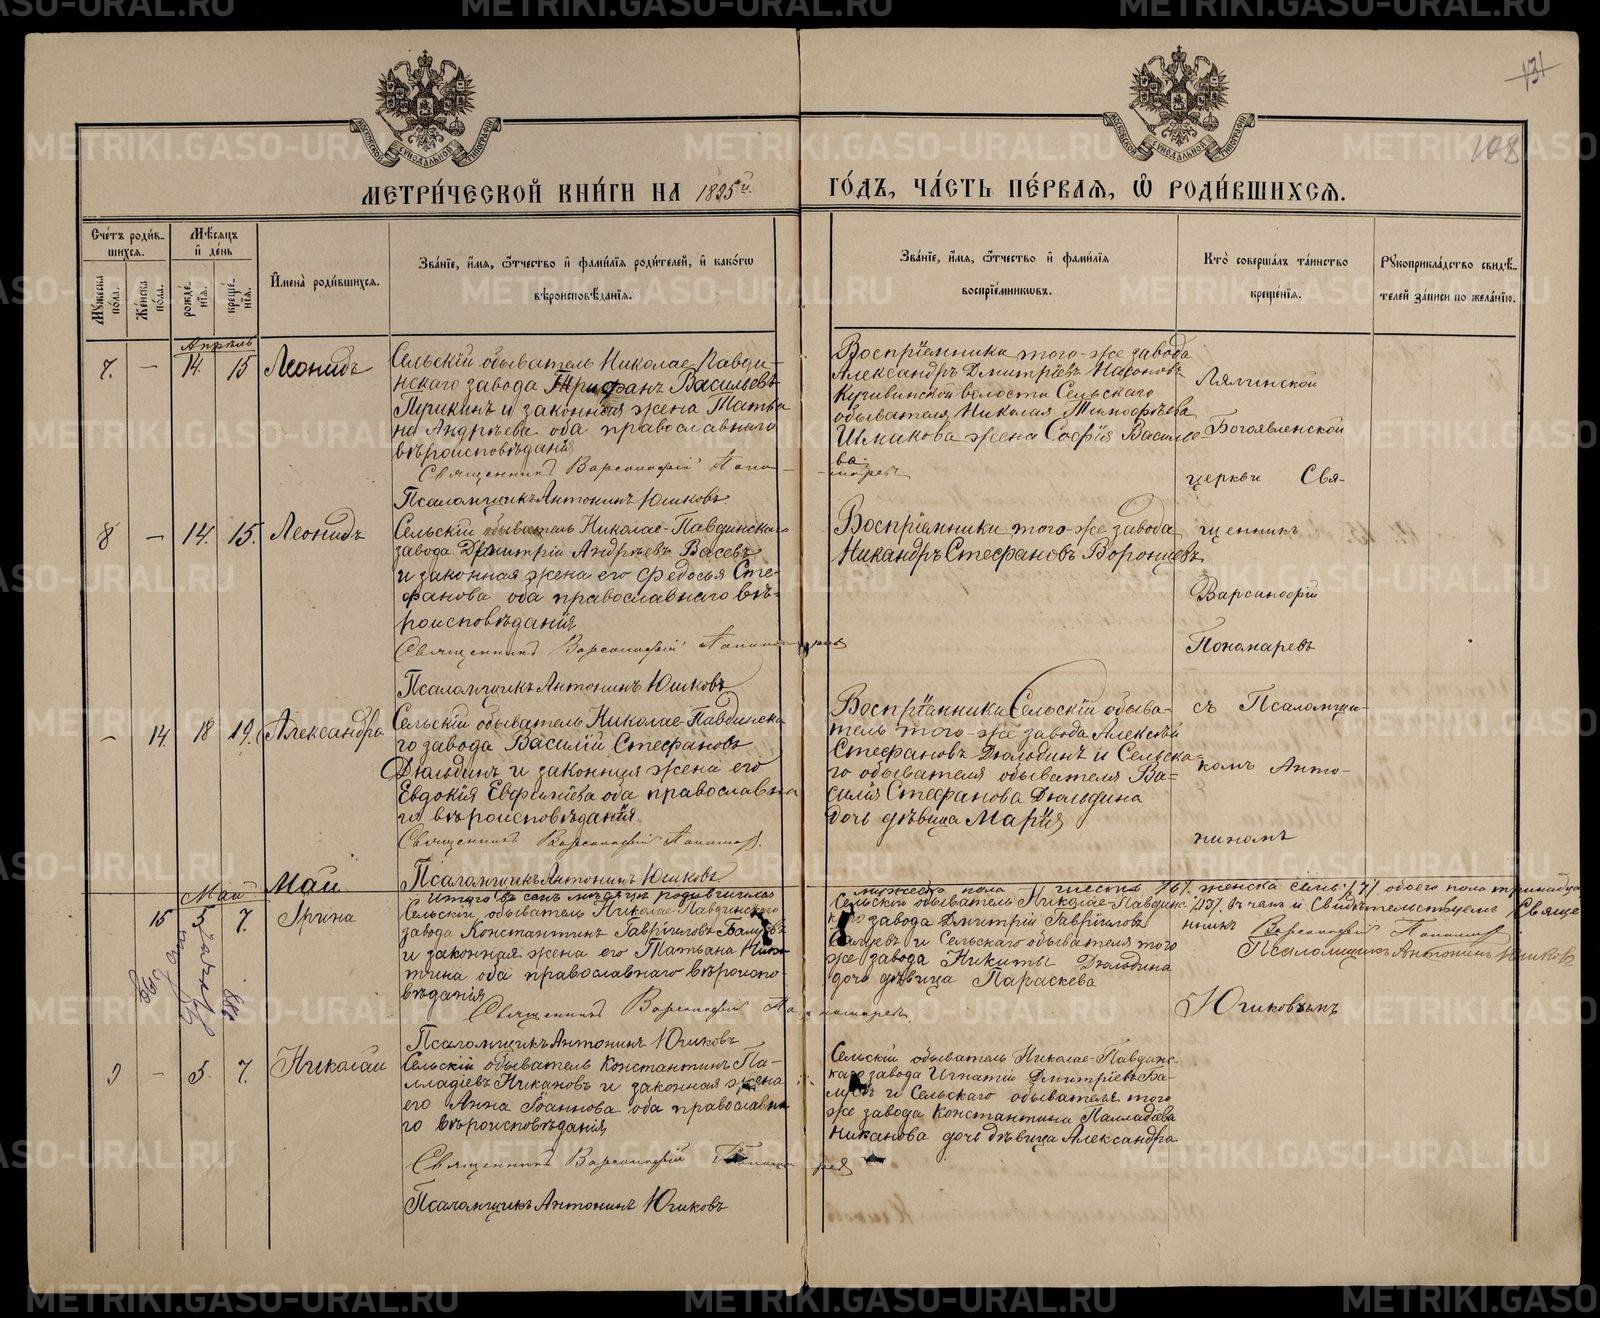 131
108
МЕТРИ́ЧЕСКОЙ КНИ́ГИ НА 1895й.
ГО́ДЪ, ЧА́СТЬ ПЕ́РВАЯ, Ѽ РОДИ́ВШИХСЯ.
Сче́тъ роди́в-
шихся.
Му́жеска
пола.
Же́нска
по́ла.
Мѣ́сяцъ
и́ де́нь
рожде́-
нія.
креще́-
нія.
И҆мена̀ роди́вшихся.
Зва́ніе, и҆́мя, ѻ҆́тчество и҆ фами́лія роди́телей, и҆ како́гѡ
вѣроисповѣ́данія.
Зва́ніе, и҆́мя, ѻ҆́тчество и҆ фами́лія
воспріе́мникѡвъ.
Кто̀ соверша́лъ та́инство
креще́нія.
Рꙋкоприкла́дство свидѣ́-
телей за́писи по жела́нію.
Апрѣль
7. — 14. 15 Леонидъ
Сельскій обыватель Николае-Павди-
нскаго завода Трифанъ Васильевъ
Пугикинъ и законная жена Татья
на Андрѣева оба православнаго
вѣроисповѣданія
Священникъ Варсанофій Поно-
марев
Псаломщикъ Антонинъ Юшковъ
Воспріемники того-же завода
Александръ Дмитріевъ Насоновъ
Кушвинской волости Сельскаго
обывателя Николая Тимофѣева
Шмакова жена Софія Василье-
ва.
Лялинской
Богоявленской
церкви Свя-
щенникъ
Варсанофій
Пономаревъ
съ Псаломщи-
комъ Анто-
ниномъ
Юшковымъ
8 — 14. 15. Леонидъ
Сельскій обыватель Николае-Павдинскаго
завода Дмитрій Андрѣевъ Васевъ
и законная жена его Федосья Сте-
фанова оба православнаго вѣ-
роисповѣданія
Священникъ Варсанофій Пономарев
Псаломщикъ Антонинъ Юшковъ
Воспріемники того-же завода
Никандръ Стефановъ Воронцевъ
— 14. 18 19. Александра
Сельскій обыватель Николае-Павдинска
го завода Василій Стефановъ
Дюльдинъ и законная жена его
Евдокія Евфиміева оба православна
го вѣроисповѣданія.
Священникъ Варсанофій Пономар.
Псаломщикъ Антонинъ Юшковъ
Воспріемники Сельскій обыва-
тель того-же завода Алексѣй
Стефановъ Дюльдинъ и Сельска-
го обывателя обывателя Ва-
силія Стефанова Дюльдина
дочь дѣвица Марія
Итого въ семъ мѣсяцѣ родившихся
мужеска пола шесть /6/ женска семь /7/ обоего пола тринадца
/13/. въ чемъ и Свидѣтельствуемъ Свяще
нникъ Варсанофій Пономар
Псаломщикъ Антонинъ Юшковъ
Май
Май
15 5 7. Ирина
Сельскій обыватель Николае-Павдинскаго
завода Константинъ Гавріиловъ
и законная жена его Татьана Ники-
тина оба православнаго вѣроиспо-
вѣданія
Священникъ Варсанофій Пономарев
Псаломщикъ Антонинъ Юшковъ
Сельскій обыватель Николае-Павдинска
го завода Дмитрій Гавріиловъ
и Сельскаго обывателя того
же завода Никиты Дюльдина
дочь дѣвица Параскева
9 — 5. 7. Николай
Сельскій обыватель Константинъ Па-
лладіевъ Никановъ и законная жена
его Анна Іоаннова оба православна
го вѣроисповѣданія
Священникъ Варсанофій Пономарев
Псаломщикъ Антонинъ Юшковъ
Сельскій обыватель Николае-Павдинс-
каго завода Игнатій Дмитріевъ
и Сельскаго обывателя того
же завода Константина Палладіева
Никанова дочь дѣвица Александра